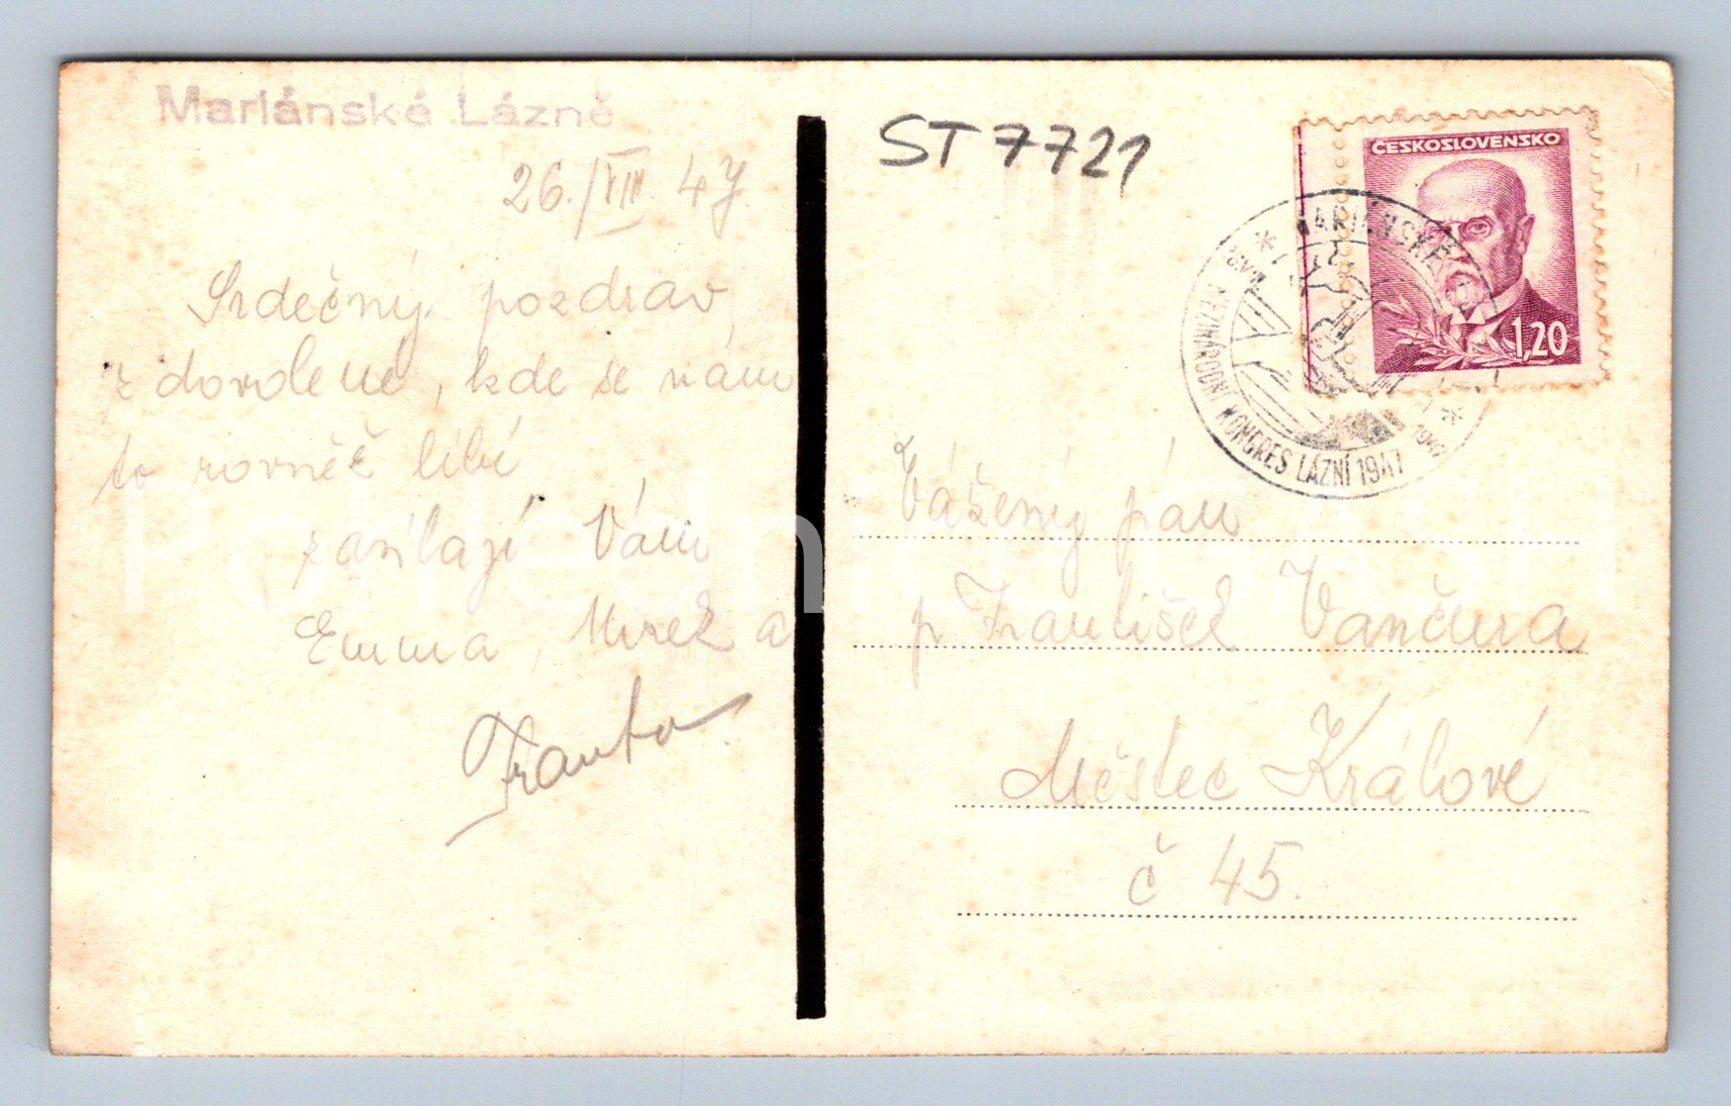 Mariánské Lázně
26./VIII. 47
Srdečný pozdrav
z dovolené, kde se nám
to rovněž líbí
zasílají Vám
Emma, Mirek a
Franta.
ST 7721
ČESKOSLOVENSKO
1,20
MARIÁNSKÉ
MEZINÁRODNÍ KONGRES LÁZNÍ 1947
Vážený pán
p. František Vančura
Městec Králové
č 45.